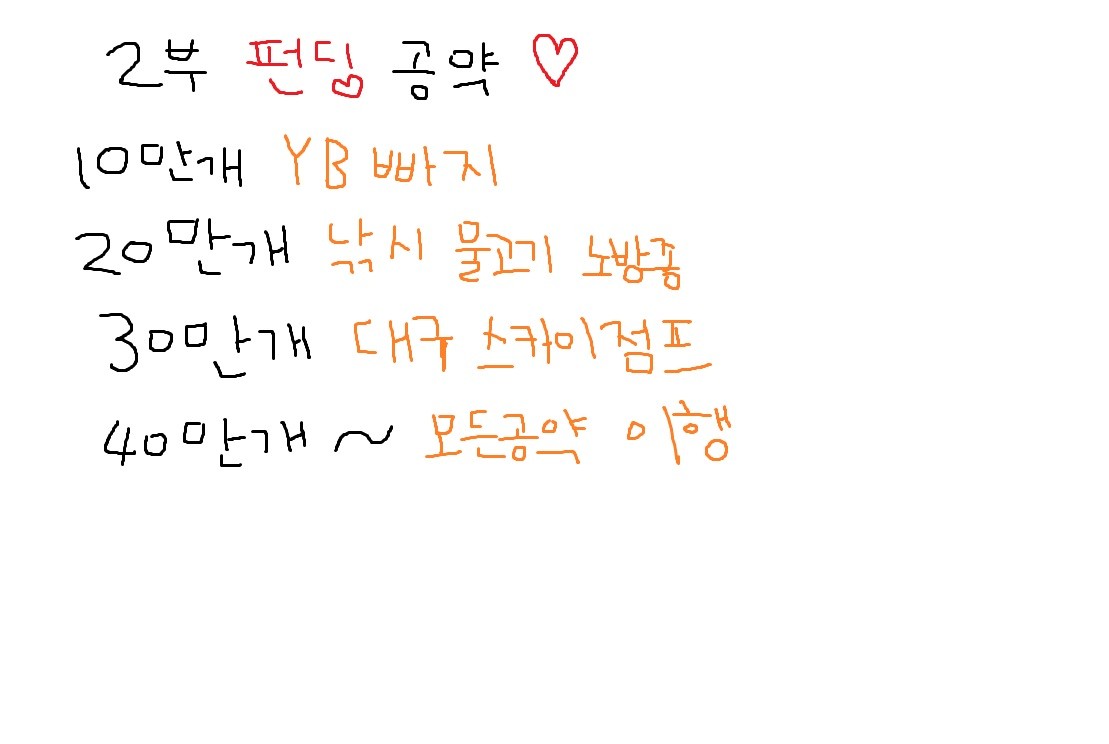 2부 펀딩 공약 ♡
10만개 YB 빠지
20만개 낚시 물고기 노방종
30만개 대구 스카이점프
40만개 ~ 모든공약 이행